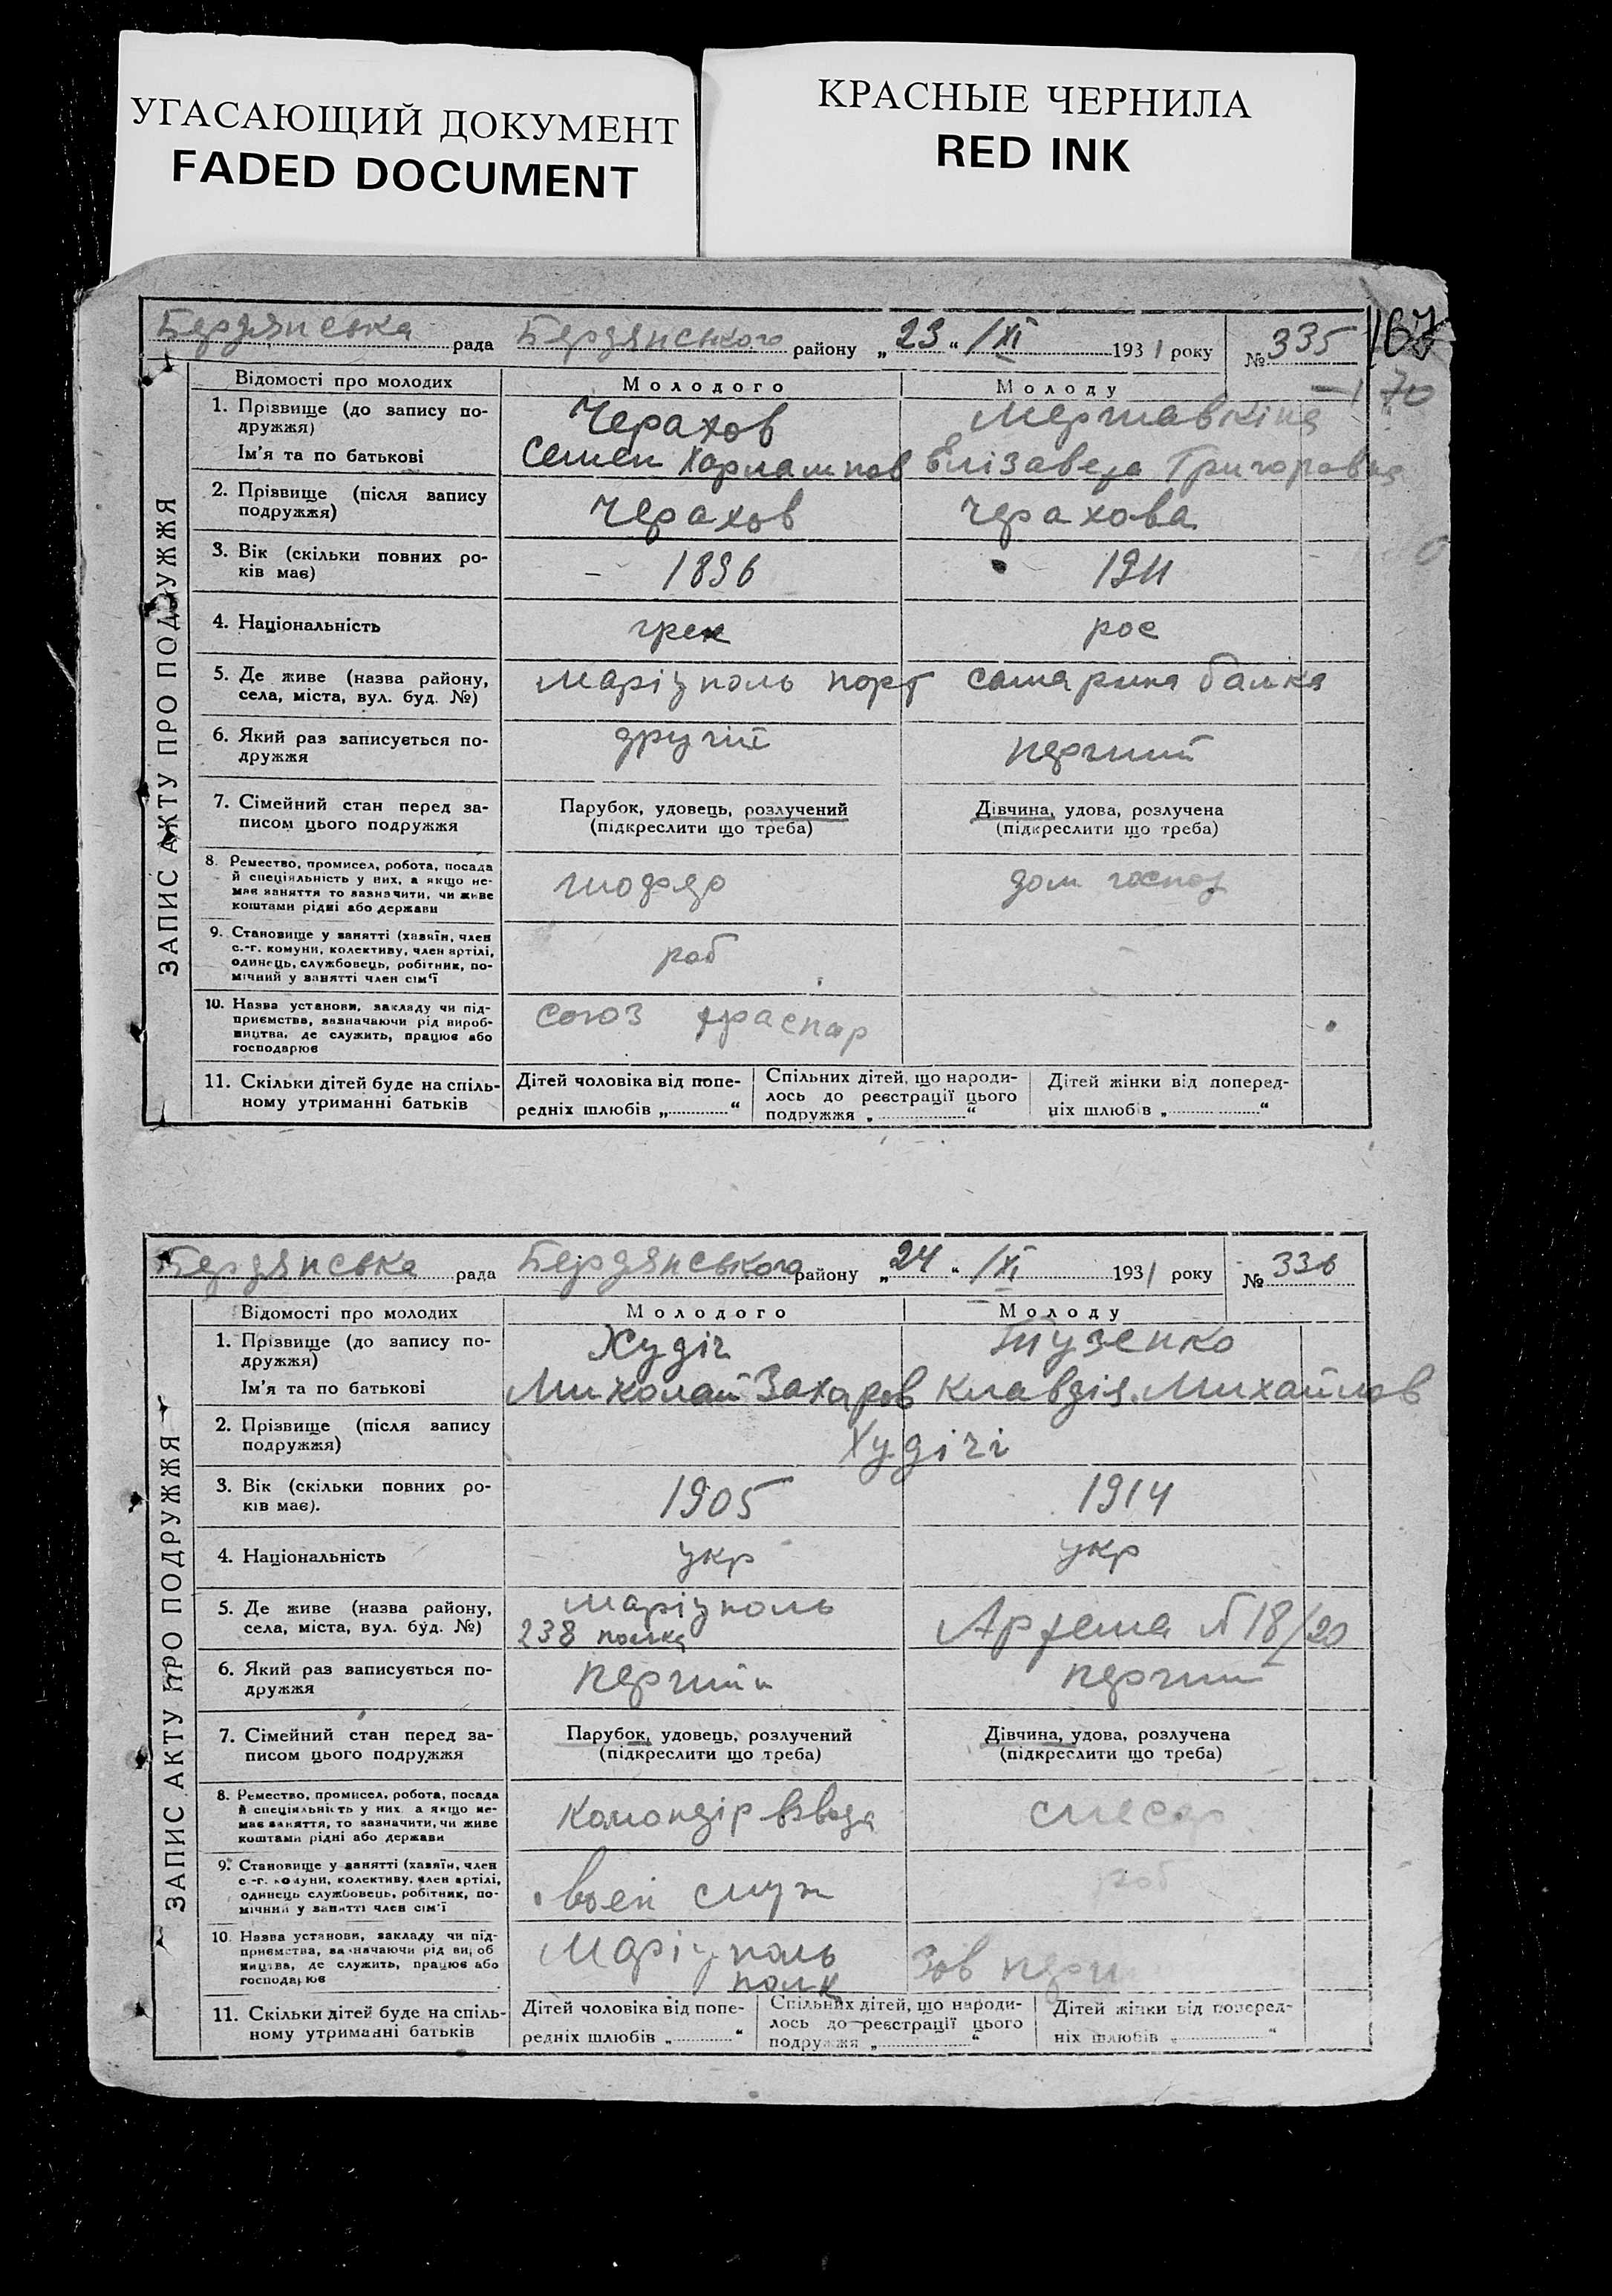 УГАСАЮЩИЙ ДОКУМЕНТ
FADED DOCUMENT
КРАСНЫЕ ЧЕРНИЛА
RED INK
Бердянська рада Бердянського району „23“ /XI 1931 року № 335
167
70
ЗАПИС АКТУ ПРО ПОДРУЖЖЯ
Відомості про молодих Молодого Молоду
1. Прізвище (до запису по-
дружжя) Черахов
Ім'я та по батькові Семен Харлампов Єлізавета Григоровна
2. Прізвище (після запису
подружжя) Черахов Черахова
3. Вік (скільки повних ро-
ків має) – 1896 1911
4. Національність грек рос
5. Де живе (назва району,
села, міста, вул. буд. №) Маріуполь порт самарина балка
6. Який раз записується по-
дружжя другий перший
7. Сімейний стан перед за-
писом цього подружжя
Парубок, удовець, розлучений
(підкреслити що треба)
Дівчина, удова, розлучена
(підкреслити що треба)
8. Ремество, промисел, робота, посада
й спеціяльність у них, а якщо не-
має заняття то зазначити, чи живе
коштами рідні або держави
дом господ
9. Становище у занятті (хазяїн, член
с.-г. комуни, колективу, член артілі,
одинець, службовець, робітник, по-
мічний у занятті член сім'ї
роб
10. Назва установи, закладу чи під-
приємства, зазначаючи рід вироб-
ництва, де служить, працює або
господарює
союз
11. Скільки дітей буде на спіль-
ному утриманні батьків
Дітей чоловіка від попе-
редніх шлюбів „ “
Спільних дітей, що народи-
лось до реєстрації цього
подружжя „ “
Дітей жінки від поперед-
ніх шлюбів „ “
Бердянська рада Бердянського району „24“ /XI 1931 року № 336
ЗАПИС АКТУ ПРО ПОДРУЖЖЯ
Відомості про молодих Молодого Молоду
1. Прізвище (до запису по-
дружжя) Худіч Тузенко
Ім'я та по батькові Миколай Захаров Клавдія Михайлов
2. Прізвище (після запису
подружжя) Худічі
3. Вік (скільки повних ро-
ків має). 1905 1914
4. Національність укр укр
5. Де живе (назва району,
села, міста, вул. буд. №) Маріуполь
238 полка Артема № 18/20
6. Який раз записується по-
дружжя перший перший
7. Сімейний стан перед за-
писом цього подружжя
Парубок, удовець, розлучений
(підкреслити що треба)
Дівчина, удова, розлучена
(підкреслити що треба)
8. Ремество, промисел, робота, посада
й спеціяльність у них, а якщо не-
має заняття, то зазначити, чи живе
коштами рідні або держави
Командір взвода слесар
9. Становище у занятті (хазяїн, член
с.-г. комуни, колективу, член артілі,
одинець службовець, робітник, по-
мічний у занятті член сім'ї
воен служ роб
10. Назва установи, закладу чи під-
приємства, зазначаючи рід вироб-
ництва, де служить, працює або
господарює
Маріуполь
полк
11. Скільки дітей буде на спіль-
ному утриманні батьків
Дітей чоловіка від попе-
редніх шлюбів „ “
Спільних дітей, що народи-
лось до реєстрації цього
подружжя „ “
Дітей жінки від поперед-
ніх шлюбів „ “